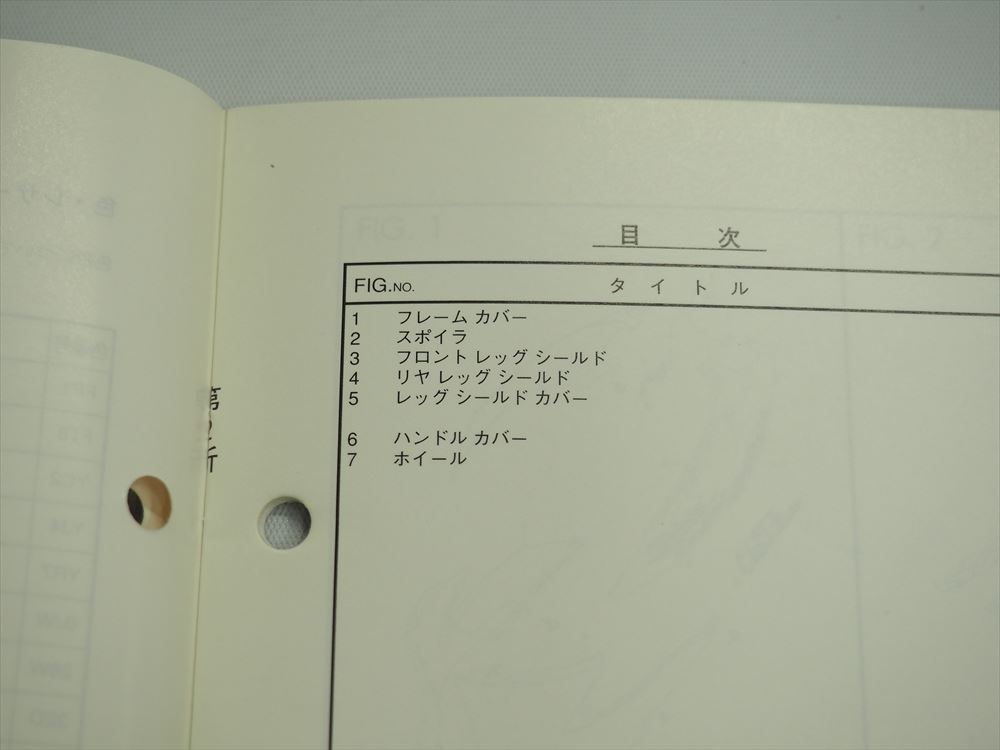 目 次
FIG.NO. タ イ ト ル
1 フレーム カバー
2 スポイラ
3 フロント レッグ シールド
4 リヤ レッグ シールド
5 レッグ シールド カバー
6 ハンドル カバー
7 ホイール
FIG. 1
FIG. 2